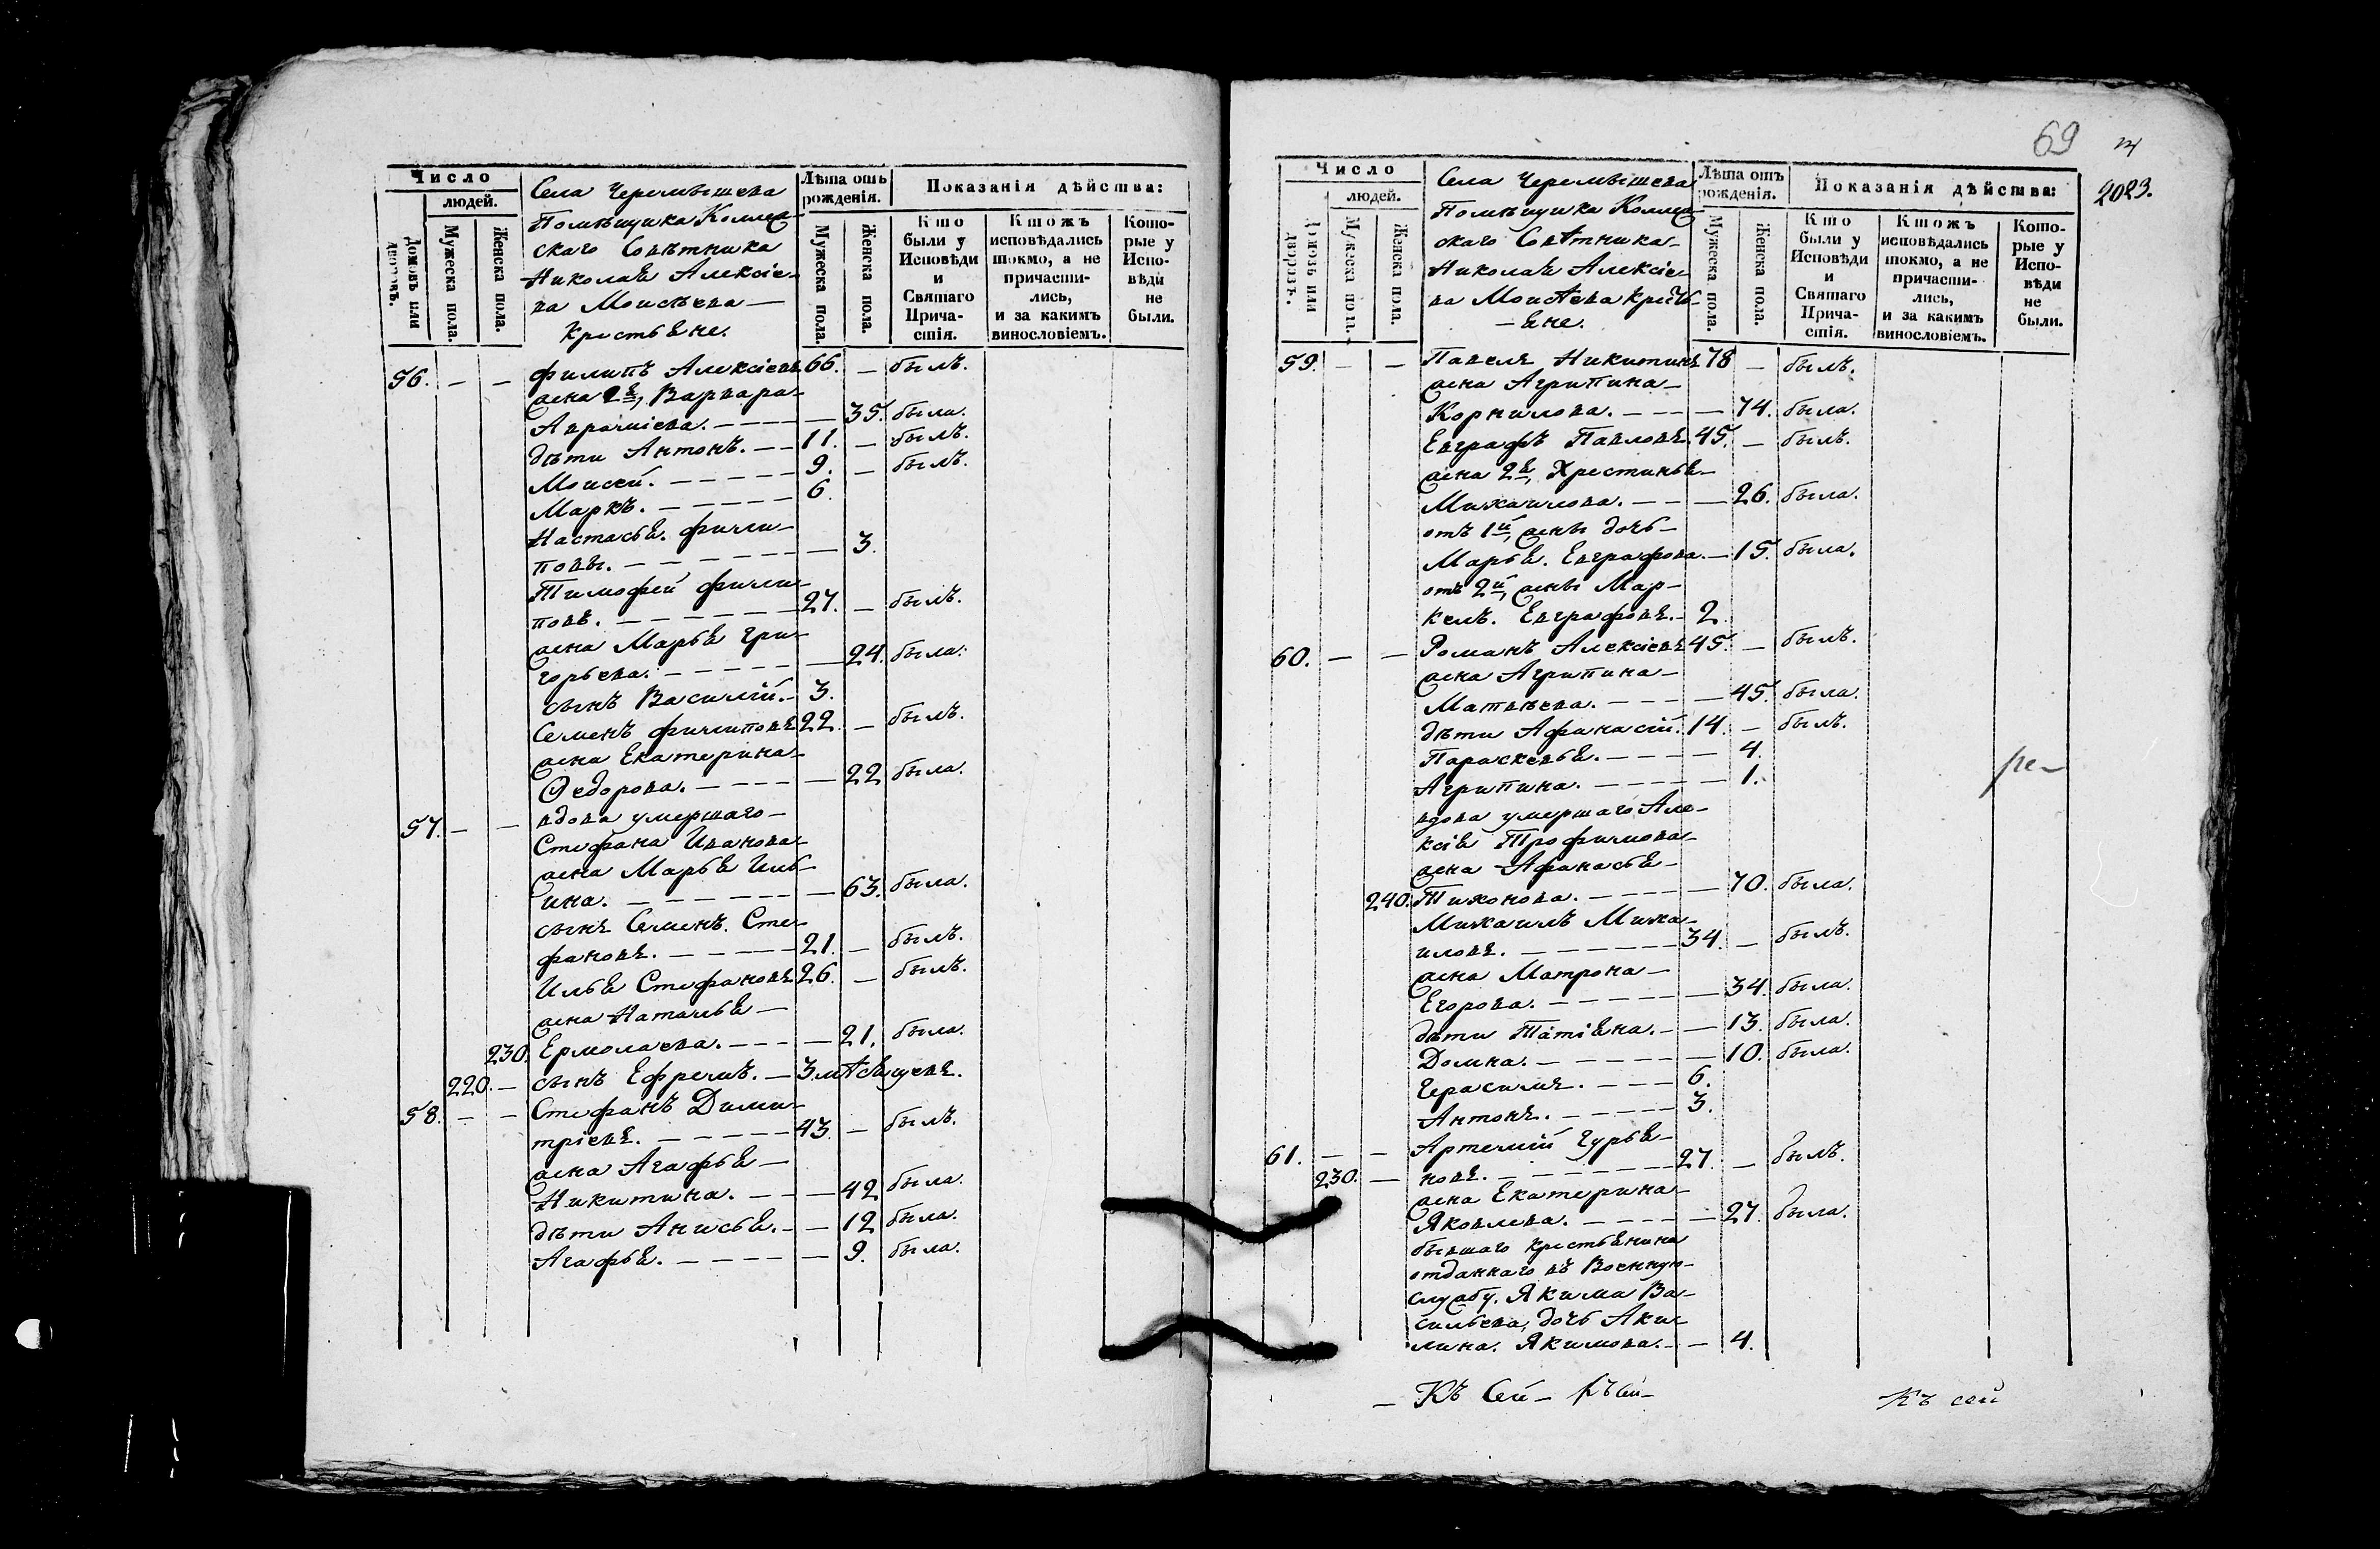 Число
людей.
Домовъ или дворовъ.
Мужеска пола.
Женска пола.
Села Черемышева
Помѣщика Коллеж-
скаго Совѣтника
Николая Алексіе-
ва Моисѣева —
Крестьяне.
Лѣта отъ рожденія.
Мужеска пола.
Женска пола.
Показанія дѣйства:
Кто были у Исповѣди и Святаго Прича-стія.
Ктожъ исповѣдались токмо, а не причасти-лись, и за какимъ винословіемъ.
Кото-рые у Испо-вѣди не были.
56. — — Филипъ Алексіевъ 66. — былъ.
жена 2я, Варвара
Аврамиева. — — — — 35. была.
дѣти Антонъ. — — 11. — былъ.
Моисей. — — — — 9. — былъ.
Маркъ. — — — — — 6.
Настасья. Фили-
повы. — — — — — — 3.
Тимофей Фили-
повъ. — — — — — — 27. — былъ.
жена Марья Гри-
горьева. — — — — — 24. была.
сынъ Василій. — 3.
Семенъ Филиповъ 22. — былъ.
жена Екатерина
Ѳедорова. — — — — — 22 была.
57. — — вдова умершаго —
Стефана Иванова
жена Марья Иль-
ина. — — — — — — — 63. была.
сынъ Семенъ. Сте-
фановъ. — — — — — 21. — былъ.
Илья Стефановъ 26. — былъ.
жена Наталья —
230. Ермолаева. — — — — 21. была.
220. — сынъ Ефремъ. — 3. мѣсяцевъ.
58. — — Стефанъ Дими-
тріевъ. — — — — — 43. — былъ.
жена Агафья —
Никитина. — — — 42 была.
дѣти Анисья. — — 12 была.
Агафья. — — — — — 9. была.
69
2023.
Число
людей.
Домовъ или дворовъ.
Мужеска пола.
Женска пола.
Села Черемышева
Помѣщика Коллеж-
скаго Совѣтника
Николая Алексіе-
ва Моисѣева Кресть-
— яне.
Лѣта отъ рожденія.
Мужеска пола.
Женска пола.
Показанія дѣйства:
Кто были у Исповѣди и Святаго Прича-стія.
Ктожъ исповѣдались токмо, а не причасти-лись, и за какимъ винословіемъ.
Кото-рые у Испо-вѣди не были.
59. — — Павелъ Никитинъ 78 — былъ.
жена Агрипина —
Корнилова. — — — — 74. была.
Евграфъ Павловъ. 45. — былъ.
жена 2я, Христинья —
Михаилова. — — — 26. была.
отъ 1й, жены дочь —
Марья. Евграфова. — 15. была.
отъ 2й, жены Мар-
келъ. Евграфовъ. — 2.
60. — — Романъ Алексіевъ 45. — былъ.
жена Агрипина —
Матвѣева. — — — — 45. была.
дѣти Афанасій. 14. — былъ.
Параскевья. — — — — 4.
Агрипина. — — — — — 1.
вдова умершаго Але-
ксія Трофимова
жена Афанасья —
240. Тихонова. — — — — — 70. была.
Михаилъ Миха-
иловъ. — — — — — — 34. — былъ.
жена Матрона —
Егорова. — — — — — — 34. была.
дѣти Татіяна. — — 13. была.
Домна. — — — — — — 10. была.
Герасимъ. — — — 6.
Антонъ. — — — — 3.
61. — — Артемій Гурья-
230. — новъ. — — — — — — 27. — былъ.
жена Екатерина
Яковлева. — — — — — 27. была.
бывшаго крестьянина
отданнаго въ Военную
службу. Якима Ва-
сильева, дочь Аки-
лина. Якимова. — — 4.
— Къ Сей — Къ Сей — Къ сей